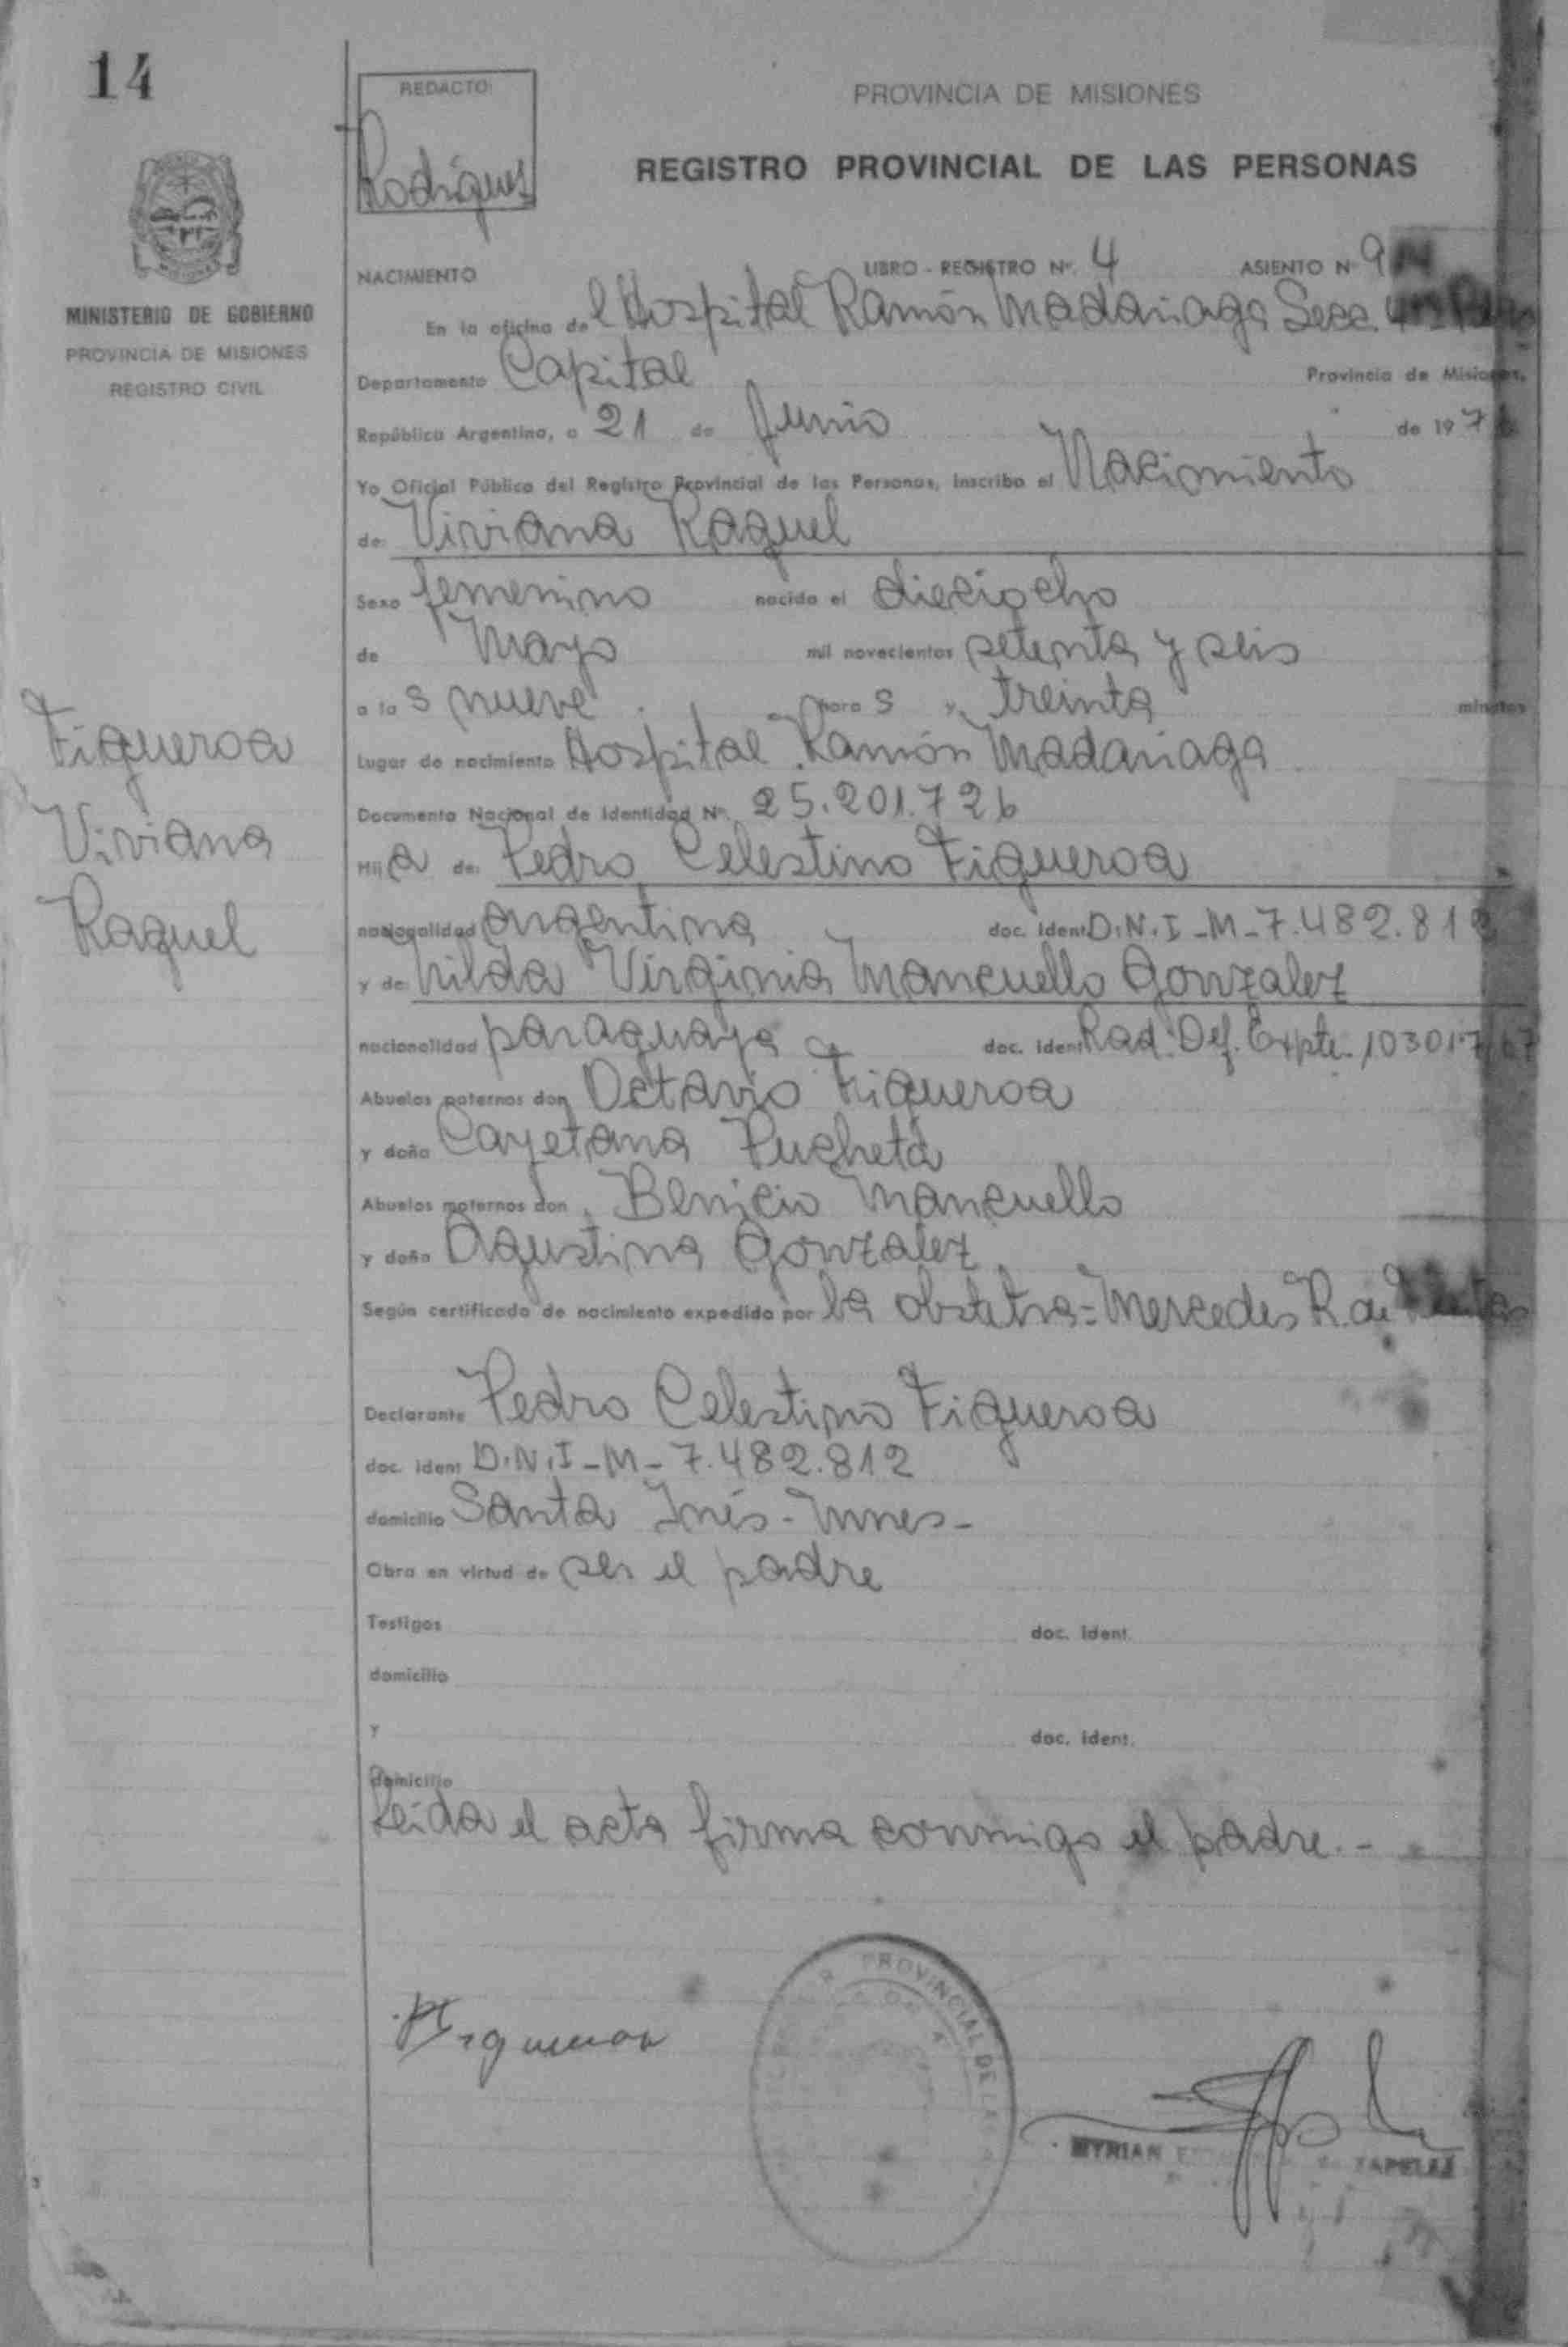 14
MINISTERIO DE GOBIERNO
PROVINCIA DE MISIONES
REGISTRO CIVIL
Figueroa
Viviana
Raquel
REDACTO:
Rodríguez
PROVINCIA DE MISIONES
REGISTRO PROVINCIAL DE LAS PERSONAS
NACIMIENTO LIBRO - REGISTRO Nº. 4 ASIENTO Nº 9
En la oficina del Hospital Ramón Madariaga Secc.
Departamento Capital Provincia de Misiones,
República Argentina, a 21 de Junio de 197
Yo Oficial Público del Registro Provincial de las Personas, inscribo el Nacimiento
de: Viviana Raquel
Sexo femenino nacido el dieciocho
de Mayo mil novecientos setenta y seis
a la s nueve hora s y treinta minutos
Lugar de nacimiento Hospital Ramón Madariaga
Documento Nacional de Identidad Nº. 25.201.726
Hij a de: Pedro Celestino Figueroa
nacionalidad argentina doc. ident D.N.I-M-7.482.812
y de: Nilda Virginia Mancuello Gonzalez
nacionalidad paraguaya doc. ident Rad. Def. Expte. 103017/67
Abuelos paternos don Octavio Figueroa
y doña Cayetana Puchetá
Abuelos maternos don Benicio Mancuello
y doña Agustina Gonzalez
Según certificado de nacimiento expedido por la obstetra-Mercedes R. de
Declarante Pedro Celestino Figueroa
doc. ident D.N.I-M-7.482.812
domicilio Santa Inés-Mnes-
Obra en virtud de ser el padre
Testigos doc. ident.
domicilio
y doc. ident.
domicilio
Leída el acta firma conmigo el padre.-
PROVINCIAL DE LA
MYRIAN